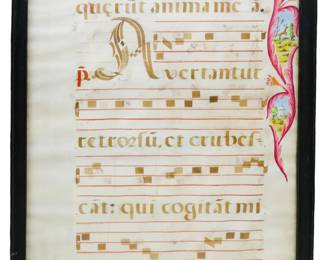 quęrūt anima me ā.
℣. Avertantur
retroꝛsū, et erubeſ-
cāt: qui cogitāt mi